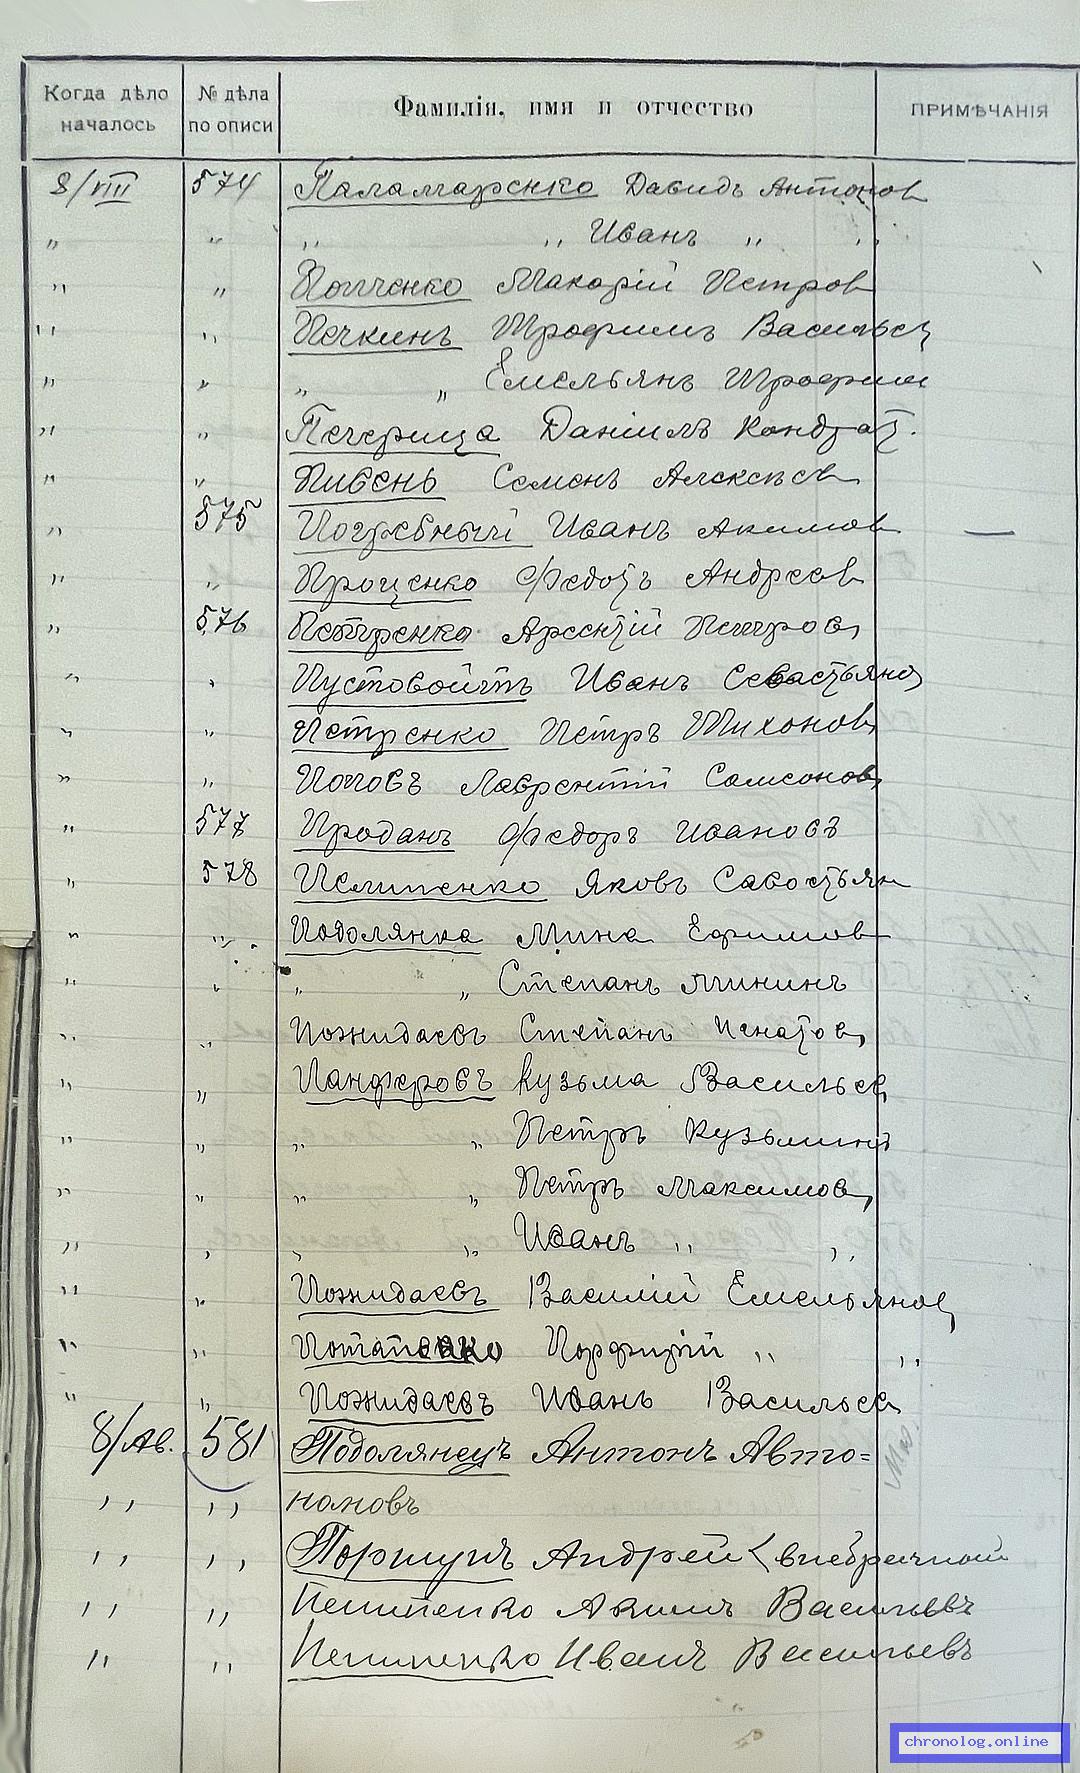 Когда дѣло началось № дѣла по описи Фамилія, имя и отчество ПРИМѢЧАНІЯ
8/VIII 574 Паламаренко Давидъ Антонов
„ „ „ „ Иванъ „ „
„ „ Попченко Макарій Петров
„ „ Печкинъ Трофимъ Васильев
„ „ „ „ Емельянъ Трофим
„ „ Печерица Даніилъ Кондрат.
„ „ Пивень Семенъ Алексѣев
„ 575 Погребный Иванъ Акимов —
„ „ Проценко Федотъ Андреев
„ 576 Петренко Арсентій Петров
„ „ Пустовойтъ Иванъ Севастьянов
„ „ Петренко Петръ Тихонов
„ „ Поповъ Лаврентій Самсонов
„ 577 Проданъ Федоръ Ивановъ
„ 578 Пелипенко Яковъ Савостьян
„ „ Подолянка Мина Ефимов
„ „ „ „ Степанъ Мининъ
„ „ Пожидаевъ Степанъ Игнатов
„ „ Панферовъ Кузьма Васильев
„ „ „ „ Петръ Кузьминъ
„ „ „ „ Петръ Максимов
„ „ „ „ Иванъ „ „
„ „ Пожидаевъ Василій Емельянов
„ „ Потапенко Порфирій „ „
„ „ Пожидаевъ Иванъ Васильев
8/Ав. 581 Подолянецъ Антонъ Авто=
„ „ номовъ
„ „ Поршунъ Андрей (внебрачный
„ „ Пепипенко Акимъ Васильевъ
„ „ Пепипенко Иванъ Васильевъ
chronolog.online